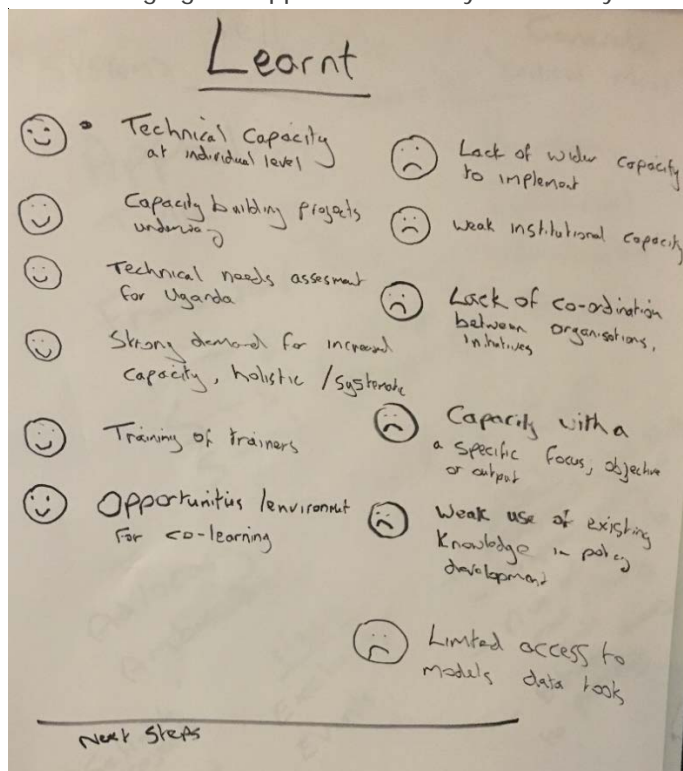 Learnt
Technical Capacity
at individual level
Capacity building projects
underway
Technical needs assesment
for Uganda
Strong demand for increased
capacity, holistic / systematic
Training of trainers
Opportunities / environment
for co-learning
Lack of wider capacity
to implement
Weak institutional capacity
Lack of co-ordination
between organisations,
initiatives
Capacity with a
a specific focus, objective
or output
Weak use of existing
knowledge in policy
development
Limited access to
models data tools
Next Steps